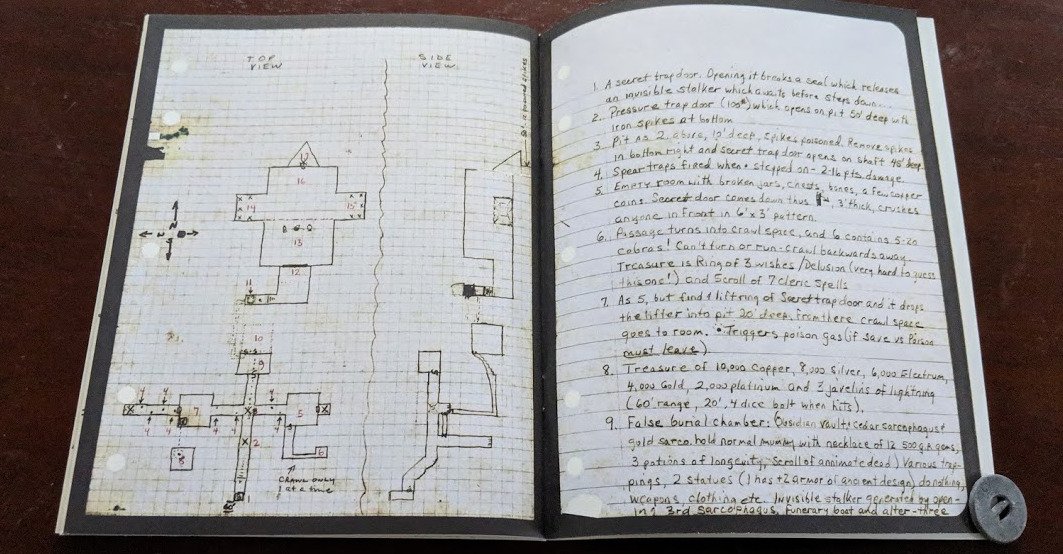 TOP
VIEW
SIDE
VIEW
17
16
14
15
13
12
11
10
9
4 4 4 4
7
5
4 4 4 4
2
8
6
CRAWL ONLY
1 at a time
1
1. A secret trap door. Opening it breaks a seal which releases
an invisible stalker which awaits before steps down...
2. Pressure trap door (100#) which opens on pit 50' deep with
iron spikes at bottom
3. Pit as 2 above, 10' deep, spikes poisoned. Remove spikes
in bottom right and secret trap door opens on shaft 45' deep.
4. Spear traps fired when stepped on - 2-16 pts. damage
5. Empty room with broken jars, chests, bones, a few copper
coins. Secret door comes down thus 3' thick, crushes
anyone in front in 6' x 3' pattern.
6. Passage turns into crawl space, and 6 contains 5-20
cobras! Can't turn or run - crawl backwards away.
Treasure is Ring of 3 wishes / Delusion (very hard to guess
this one!) and Scroll of 7 cleric spells
7. As 5, but find & lift ring of Secret trap door and it drops
the lifter into pit 20' deep. From there crawl space
goes to room. • Triggers poison gas (if save vs Poison
must leave)
8. Treasure of 10,000 Copper, 8,000 Silver, 6,000 Electrum,
4,000 Gold, 2,000 platinum and 3 javelins of lightning
(60' range, 20', 4 dice bolt when hits).
9. False burial chamber: Obsidian vault & cedar sarcophagus &
gold sarco. hold normal mummy with necklace of 12 500 g.p. gems,
3 potions of longevity, scroll of annimate dead) Various trap-
pings, 2 statues (1 has +2 armor of ancient design) do nothing,
weapons, clothing etc. Invisible stalker generated by open-
ing 3rd sarcophagus, funerary boat and alter - three